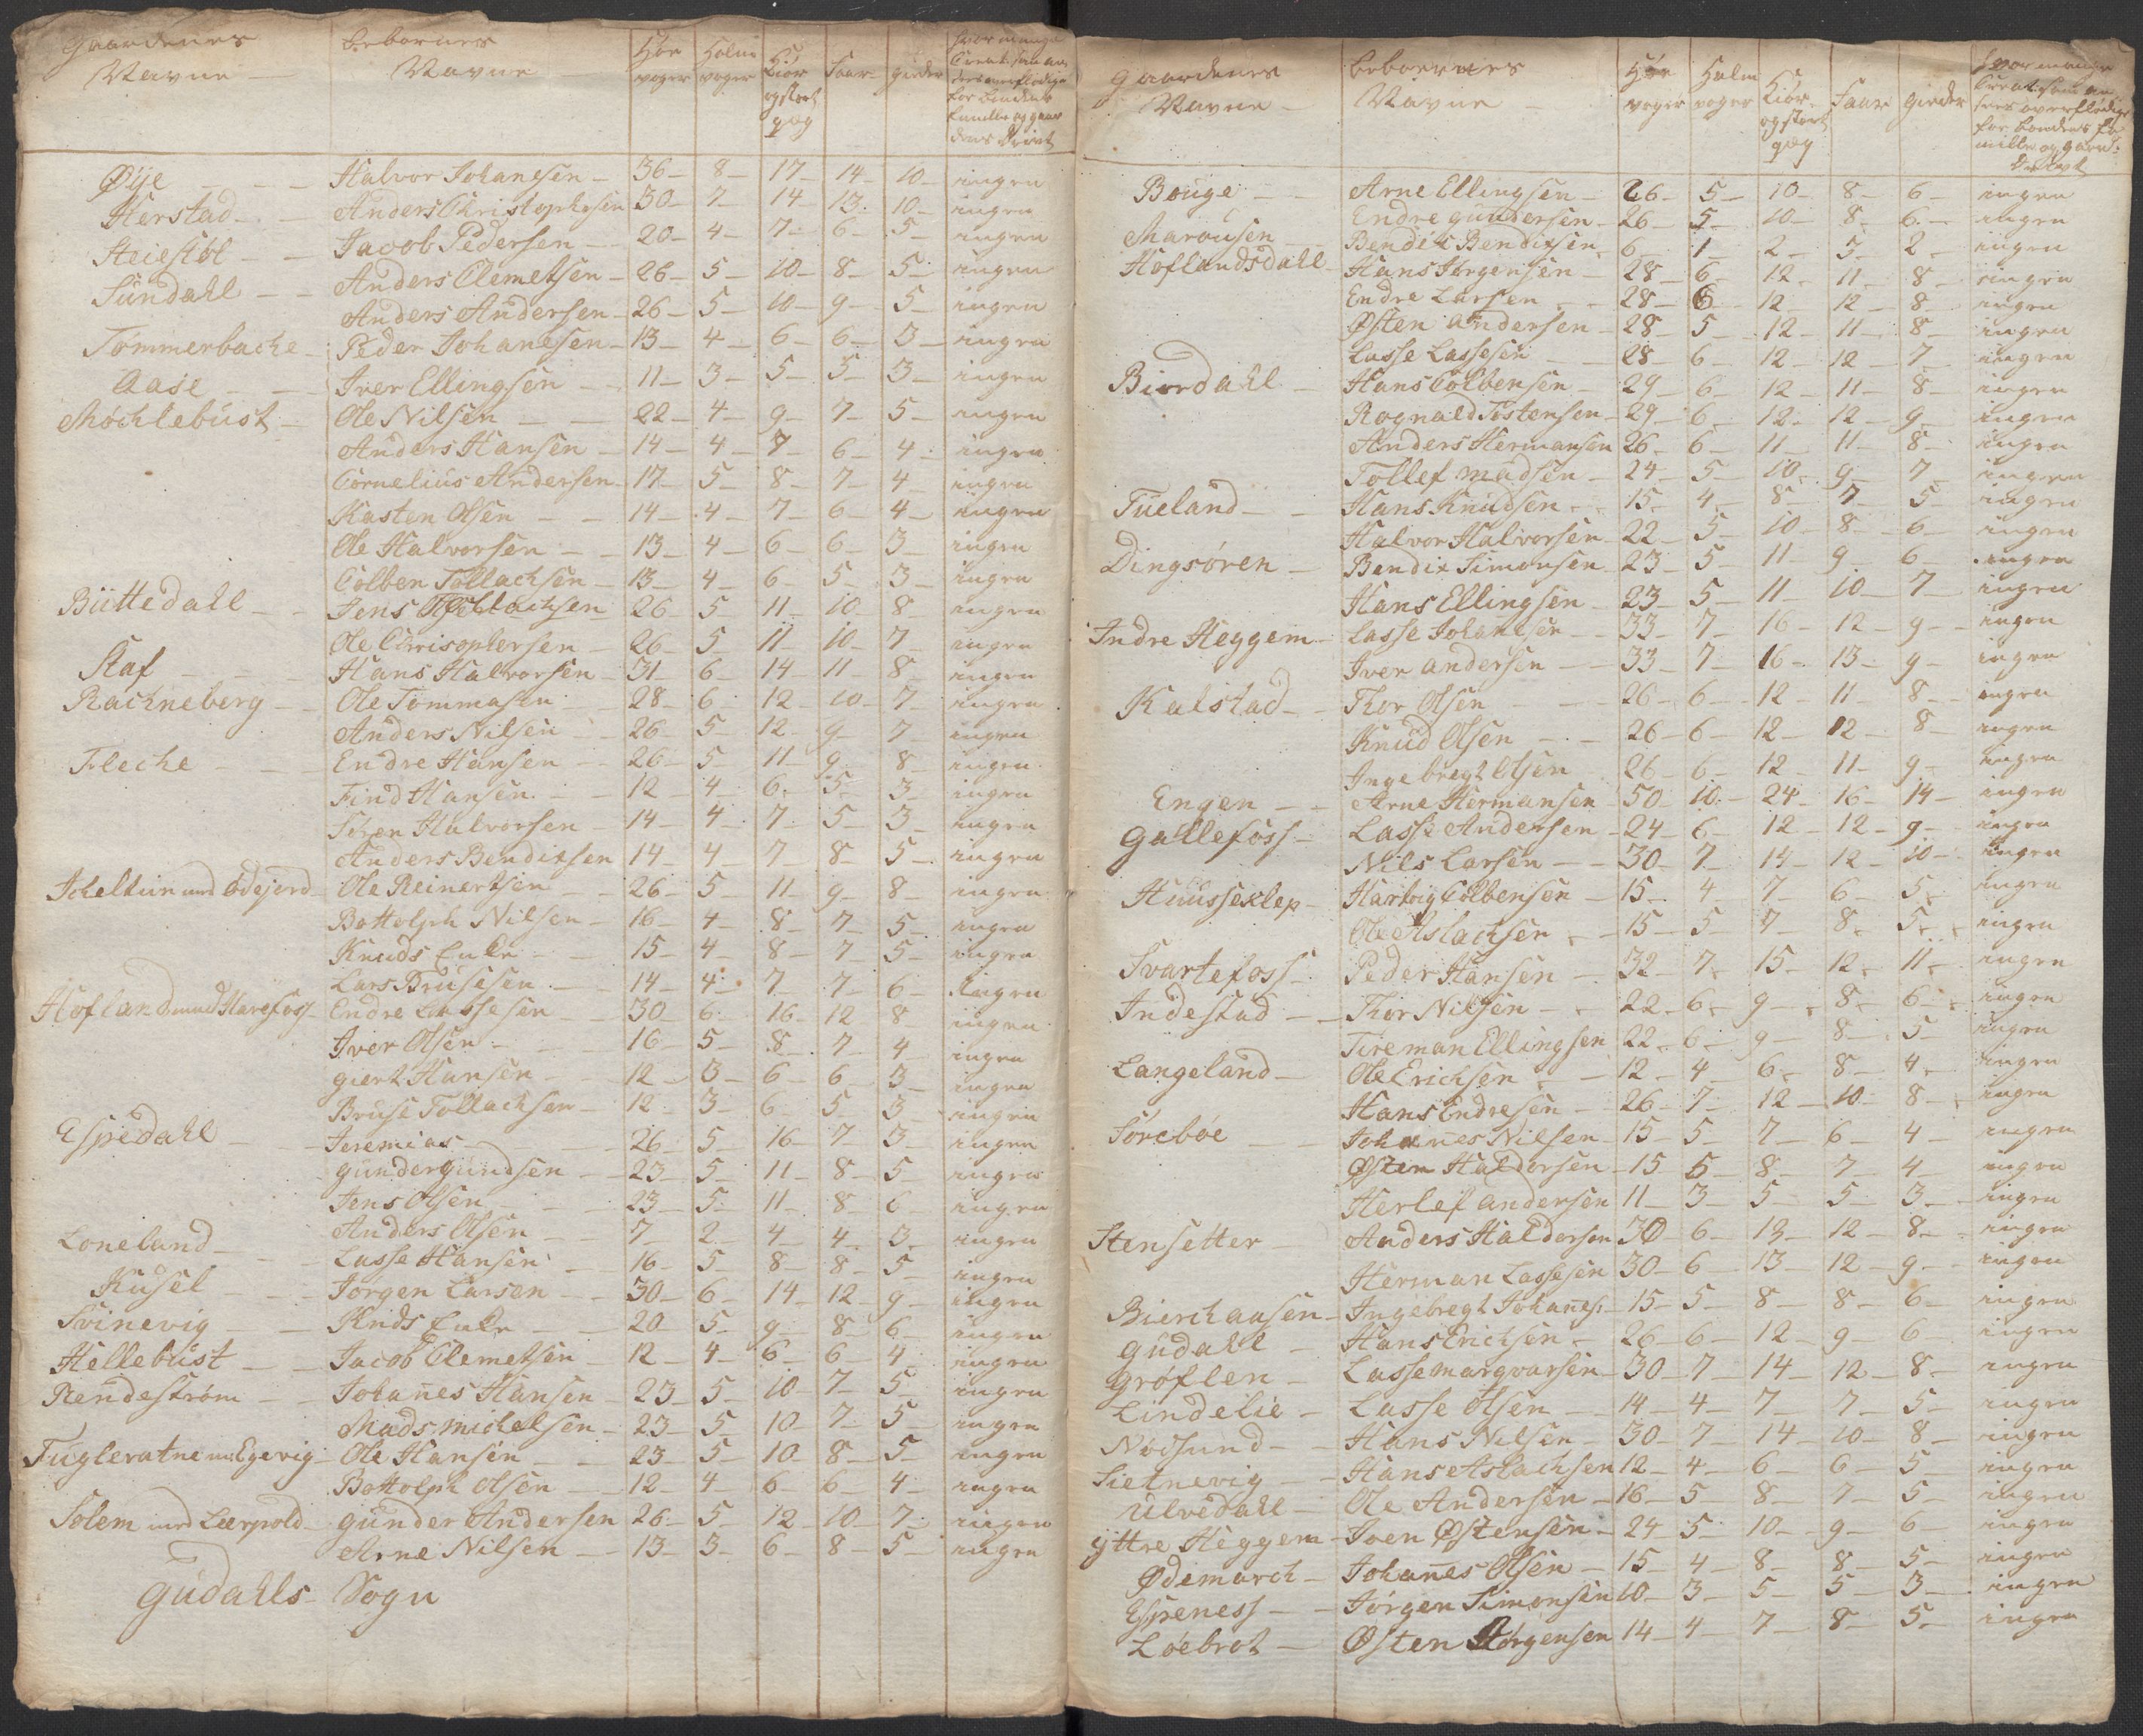 Gaardenes Navne – Beboernes Navne Høe voger Halm voger Kiør og stort qvæg Faar Gieder Hvor mange Creat. som an sees overflødige for bondens familie og gaar dens Drivt
Øÿe – Halvor Johanesen – 36 – 8 – 17 – 14 – 10 – ingen
Herstad – Anders Christophersen 30 – 7 – 14 – 13 – 10 – ingen
Heiestøl – Jacob Pedersen – 20 – 4 – 7 – 6 – 5 – ingen
Sundahl – Anders Clemetsen – 26 – 5 – 10 – 8 – 5 – ingen
Anders Andersen – 26 – 5 – 10 – 9 – 5 – ingen
Tømmerbache – Peder Johanesen – 13 – 4 – 6 – 6 – 3 – ingen
Aase – Iver Ellingsen – 11 – 3 – 5 – 5 – 3 – ingen
Møchlebust – Ole Nilsen – 22 – 4 – 9 – 7 – 5 – ingen
Anders Hansen – 14 – 4 – 7 – 6 – 4 – ingen
Cornelius Andersen – 17 – 5 – 8 – 7 – 4 – ingen
Kasten Olsen – 14 – 4 – 7 – 6 – 4 – ingen
Ole Halvorsen – 13 – 4 – 6 – 6 – 3 – ingen
Colben Tollachsen – 13 – 4 – 6 – 5 – 3 – ingen
Büttedahl – Jens 26 – 5 – 11 – 10 – 8 – ingen
Ole Chrisophersen – 26 – 5 – 11 – 10 – 7 – ingen
Staf – Hans Halvorsen – 31 – 6 – 14 – 11 – 8 – ingen
Rachneberg – Ole Tommasen – 28 – 6 – 12 – 10 – 7 – ingen
Anders Nilsen – 26 – 5 – 12 – 9 – 7 – ingen
Fleche – Endre Hansen – 26 – 5 – 11 – 9 – 8 – ingen
Find Hansen – 12 – 4 – 6 – 5 – 3 – ingen
Sören Halvorsen – 14 – 4 – 7 – 5 – 3 – ingen
Anders Bendixsen 14 – 4 – 7 – 8 – 5 – ingen
med Ødejord – Ole Reinertsen – 26 – 5 – 11 – 9 – 8 – ingen
Bottolph Nilsen – 16 – 4 – 8 – 7 – 5 – ingen
Knuds Enke – 15 – 4 – 8 – 7 – 5 – ingen
Lars Brusesen – 14 – 4 – 7 – 7 – 6 – ingen
Hofland med Harefoss – Endre Lassesen – 30 – 6 – 16 – 12 – 8 – ingen
Iver Olsen – 16 – 5 – 8 – 7 – 4 – ingen
Giert Hansen – 12 – 3 – 6 – 6 – 3 – ingen
Bruse Tollachsen – 12 – 3 – 6 – 5 – 3 – ingen
Espedahl – Jeremias – 26 – 5 – 16 – 7 – 3 – ingen
Gunder Gundsen – 23 – 5 – 11 – 8 – 5 – ingen
Jens Olsen – 23 – 5 – 11 – 8 – 6 – ingen
Anders Olsen – 7 – 2 – 4 – 4 – 3 – ingen
Loneland – Lasse Hansen – 16 – 5 – 8 – 8 – 5 – ingen
Küsel – Jørgen Larsen – 30 – 6 – 14 – 12 – 9 – ingen
Svinevig – Knds Enke – 20 – 5 – 9 – 8 – 6 – ingen
Hellebust – Jacob Clemetsen – 12 – 4 – 6 – 6 – 4 – ingen
Rendestrøm – Johañes Hansen – 23 – 5 – 10 – 7 – 5 – ingen
Mads Michelsen – 23 – 5 – 10 – 7 – 5 – ingen
Fugleratne Egevig – Ole Hansen – 23 – 5 – 10 – 8 – 5 – ingen
Bottolph Olsen – 12 – 4 – 6 – 6 – 4 – ingen
Solem med Leerpold – Gunder Andersen 26 – 5 – 12 – 10 – 7 – ingen
Arne Nilsen – 13 – 3 – 6 – 8 – 5 – ingen
Gudahls Sogn
Gaardenes Navne – Beboernes Navne – Høe voger Halm voger Kiør og stort qvæg Faar Gieder Hvor mange Creat. som an sees overflødige for bondens fa milie og gaard. Drivt
Bouge – Arne Ellingsen – 26 – 5 – 10 – 8 – 6 – ingen
Endre Gundersen – 26 – 5 – 10 – 8 – 6 – ingen
Marousen – Bendix Bendixsen 6 – 1 – 2 – 3 – 2 – ingen
Hoflandsdahl – Hans Jørgensen – 28 – 6 – 12 – 11 – 8 – ingen
Endre Larsen – 28 – 6 – 12 – 12 – 8 – ingen
Østen Andersen – 28 – 5 – 12 – 11 – 8 – ingen
Lasse Lassesen – 28 – 6 – 12 – 12 – 7 – ingen
Biordahl – Hans Colbensen – 29 – 6 – 12 – 11 – 8 – ingen
Rognald Tostensen – 29 – 6 – 12 – 12 – 9 – ingen
Anders Hermansen 26 – 6 – 11 – 11 – 8 – ingen
Tollef Madsen – 24 – 5 – 10 – 9 – 7 – ingen
Tueland – Hans Knudsen – 15 – 4 – 8 – 7 – 5 – ingen
Halvor Halvorsen – 22 – 5 – 10 – 8 – 6 – ingen
Dingsøren – Bendix Simonsen – 23 – 5 – 11 – 9 – 6 – ingen
Hans Ellingsen – 23 – 5 – 11 – 10 – 7 – ingen
Indre Heggem – Lasse Johanesen – 33 – 7 – 16 – 12 – 9 – ingen
Iver Andersen – 33 – 7 – 16 – 13 – 9 – ingen
Kalstad – Thor Olsen – 26 – 6 – 12 – 11 – 8 – ingen
Knud Olsen – 26 – 6 – 12 – 12 – 8 – ingen
Ingebregt Olsen 26 – 6 – 12 – 11 – 9 – ingen
Engen – Arne Hermansen 50 – 10 – 24 – 16 – 14 – ingen
Gällefoss – Lasse Andersen – 24 – 6 – 12 – 12 – 9 – ingen
Nils Larsen – 30 – 7 – 14 – 12 – 10 – ingen
Huussexlep – Hartvig Colbensen – 15 – 4 – 7 – 6 – 5 – ingen
Ole Aslachsen – 15 – 5 – 7 – 8 – 5 – ingen
Svartefoss – Peder Hansen – 32 – 7 – 15 – 12 – 11 – ingen
Indestad – Thor Nilsen – 22 – 6 – 9 – 8 – 6 – ingen
Tireman Ellingsen 22 – 6 – 9 – 8 – 5 – ingen
Langeland – Ole Erichsen – 12 – 4 – 6 – 8 – 4 – ingen
Hans Endresen – 26 – 7 – 12 – 10 – 8 – ingen
Sørebøe – Johanes Nilsen – 15 – 5 – 7 – 6 – 4 – ingen
Østen Haldorsen – 15 – 5 – 8 – 7 – 4 – ingen
Herlef Andersen 11 – 3 – 5 – 5 – 3 – ingen
Stensetter – Anders Haldorsen 30 – 6 – 13 – 12 – 8 – ingen
Herman Lassesen 30 – 6 – 13 – 12 – 9 – ingen
Bierchaasen – Ingebregt Johañes: – 15 – 5 – 8 – 8 – 6 – ingen
Gudahl – Hans Erichsen – 26 – 6 – 12 – 9 – 6 – ingen
Grøflen – Lasse Marqvarsen – 30 – 7 – 14 – 12 – 8 – ingen
Lindelie – Lasse Olsen – 14 – 4 – 7 – 7 – 5 – ingen
Nødsund – Hans Nilsen – 30 – 7 – 14 – 10 – 8 – ingen
Sietnevig – Hans Aslachsen 12 – 4 – 6 – 6 – 5 – ingen
Ulvedahl – Ole Andersen – 16 – 5 – 8 – 7 – 5 – ingen
Ÿttre Heggem – Iven Østensen – 24 – 5 – 10 – 9 – 6 – ingen
Ødemarch – Johañes Olsen – 15 – 4 – 8 – 8 – 5 – ingen
Espeness – Jørgen Simonsen 10 – 3 – 5 – 5 – 3 – ingen
Løebrot – Østen Jørgensen 14 – 4 – 7 – 8 – 5 – ingen